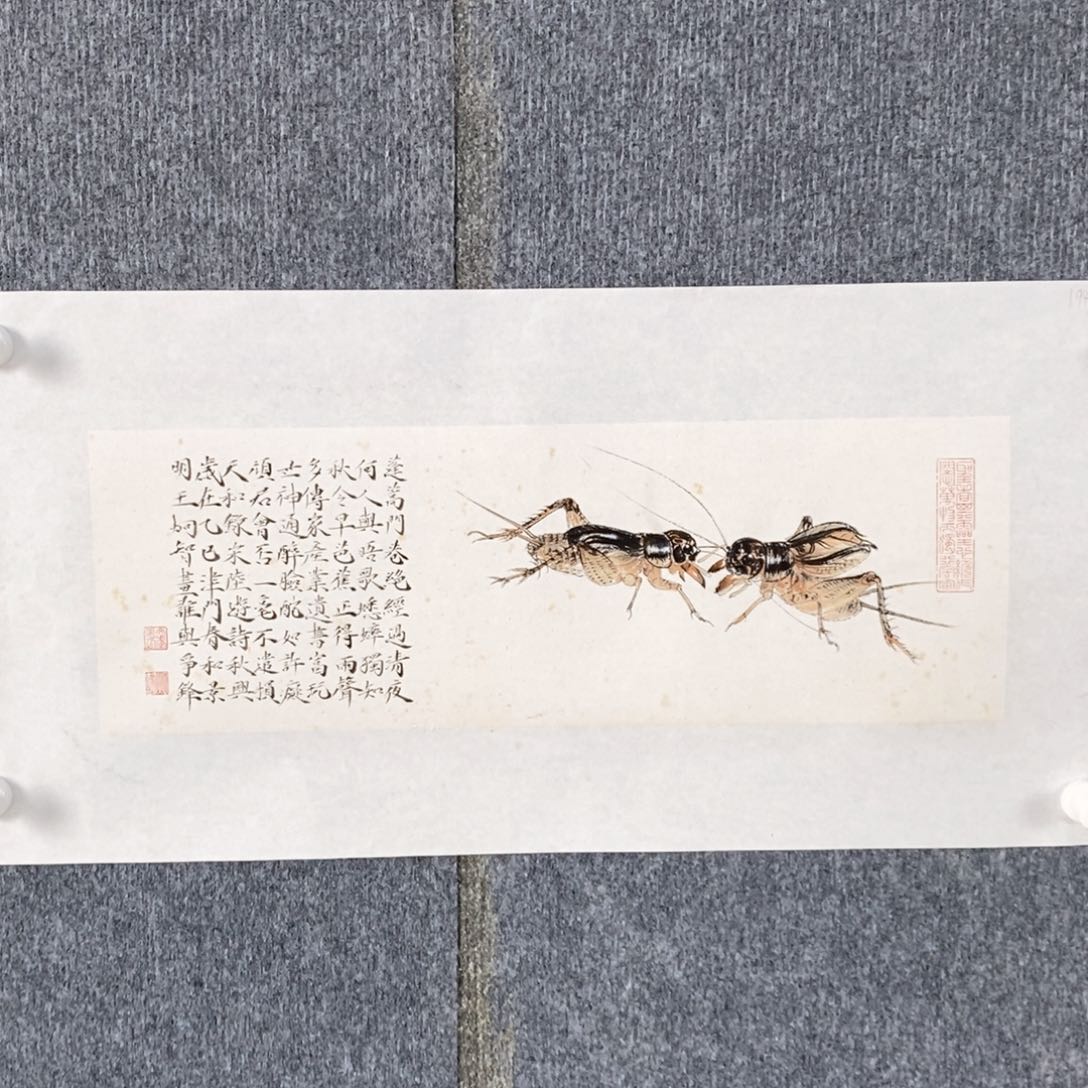 蓬蒿門巷絕經過清夜
何人與晤歌蟋蟀獨知
秋令早芭蕉正得雨聲
多傳家產業遺書富玩
世神通醉臉酡如許癡
頑君會否一毫不遣損
天和錄宋陸遊詩秋興
歲在乙巳津門春和景
明王炯智畫誰與爭鋒